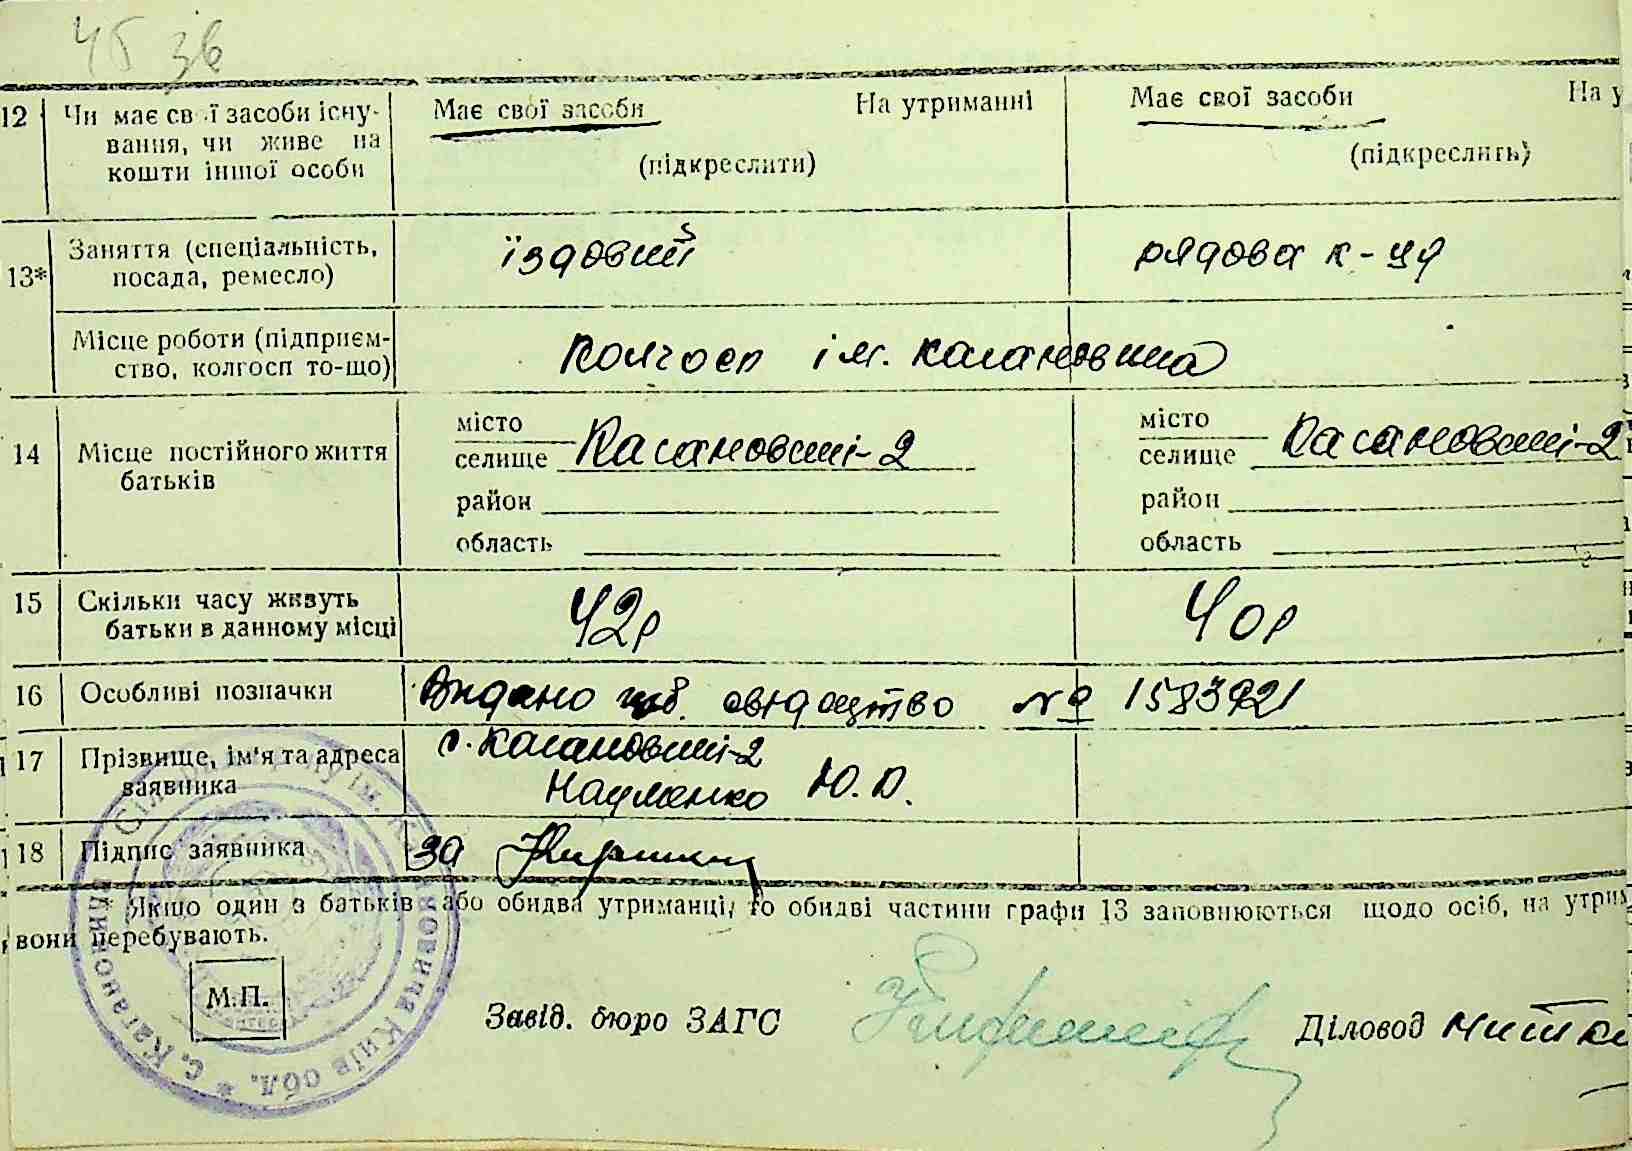 45 зв
12 Чи має св ї засоби існу-
вання, чи живе на
кошти іншої особи
Має свої засоби На утриманні
(підкреслити)
Має свої засоби На у
(підкреслить)
13* Заняття (спеціальність,
посада, ремесло)
їздовий
рядова к-ця
Місце роботи (підприєм-
ство, колгосп то-що)
Колгосп ім. Кагановича
14 Місце постійного життя
батьків
місто
селище Кагановичі-2
район
область
місто
селище Кагановичі-2
район
область
15 Скільки часу живуть
батьки в данному місці
42р
40р
16 Особливі позначки
Видано свідоцтво № 1583921
17 Прізвище, ім'я та адреса
заявника
с. Кагановичі-2
Науменко Ю. Д.
18 Підпис заявника
за
* Якщо один з батьків або обидва утриманці, то обидві частини графи 13 заповнюються щодо осіб, на утрим
вони перебувають.
М.П.
Завід. бюро ЗАГС
Діловод
Київ обл. * с. Кагановичі